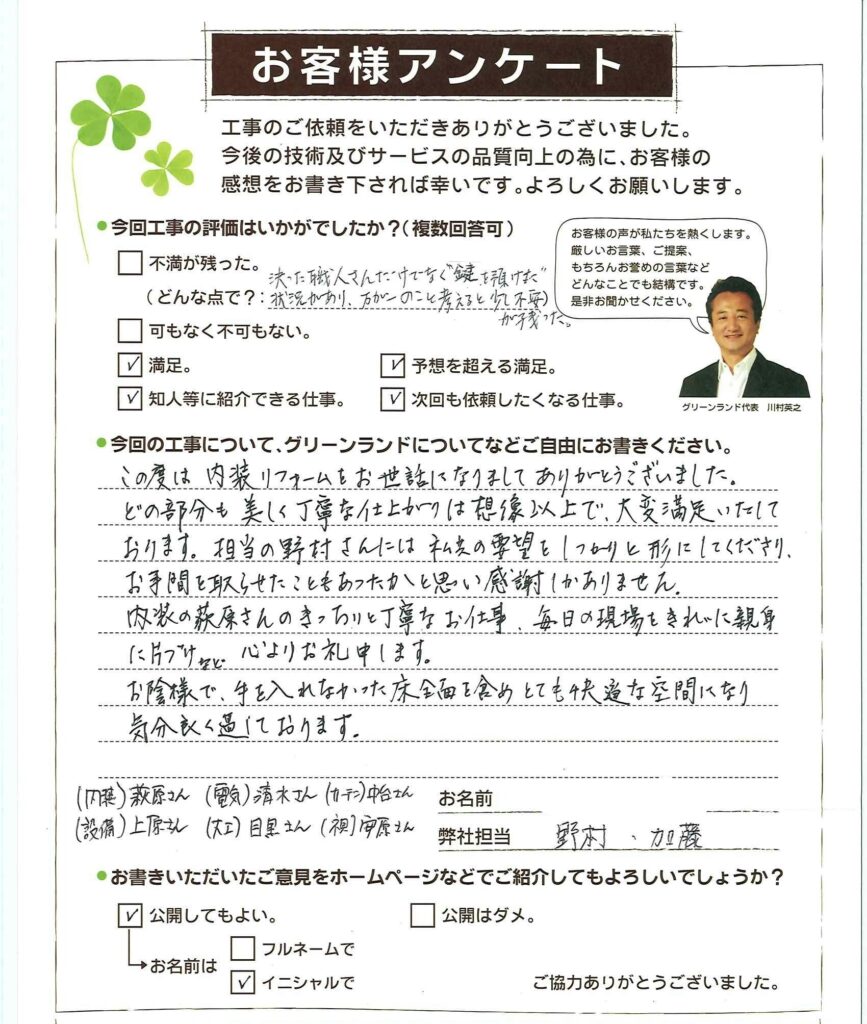 お客様アンケート
工事のご依頼をいただきありがとうございました。
今後の技術及びサービスの品質向上の為に、お客様の
感想をお書き下されば幸いです。よろしくお願いします。
今回工事の評価はいかがでしたか？(複数回答可)
お客様の声が私たちを熱くします。
厳しいお言葉、ご提案、
もちろんお誉めの言葉など
どんなことでも結構です。
是非お聞かせください。
不満が残った。
決った職人さんだけでなく"鍵を預けた"
(どんな点で？: 状況があり、万が一のこと考えると少し不安)
が残った。
可もなく不可もない。
満足。 予想を超える満足。
知人等に紹介できる仕事。 次回も依頼したくなる仕事。
グリーンランド代表 川村英之
今回の工事について、グリーンランドについてなどご自由にお書きください。
この度は内装リフォームをお世話になりましてありがとうございました。
どの部分も美しく丁寧な仕上がりは想像以上で、大変満足いたして
おります。担当の野村さんには私共の要望をしっかりと形にしてくださり、
お手間を取らせたこともあったかと思い感謝しかありません。
内装の萩原さんのきっちりと丁寧なお仕事、毎日の現場をきれいに親身
に片づけなど 心よりお礼申します。
お陰様で、手を入れなかった床全面を含めとても快適な空間になり
気分良く過しております。
(内装)萩原さん (電気)清水さん (カーテン)中台さん
(設備)上原さん (大工)目黒さん
お名前
弊社担当 野村・加藤
お書きいただいたご意見をホームページなどでご紹介してもよろしいでしょうか？
公開してもよい。 公開はダメ。
お名前は
フルネームで
イニシャルで
ご協力ありがとうございました。